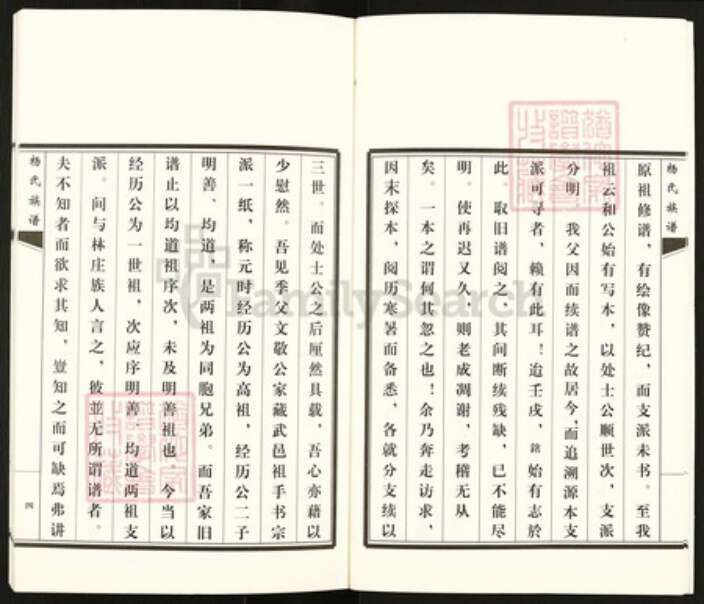 杨氏族谱
原祖修谱，有绘像赞纪，而支派未书。至我
祖云和公始有写本，以处士公顺世次，支派
分明。我父因而续谱之故居今，而追溯源本支
派可寻者，赖有此耳！迨壬戌，銘始有志於
此。取旧谱阅之，其间断续残缺，已不能尽
明。使再迟又久，则老成凋谢，考稽无从
矣。一本之谓何其忽之也！余乃奔走访求，
因末探本，阅历寒暑而备悉，各就分支续以
三世。而处士公之后厘然具载，吾心亦藉以
少慰然。吾见季父文敬公家藏武邑祖手书宗
派一纸，称元时经历公为高祖，经历公二子
明善、均道，是两祖为同胞兄弟。而吾家旧
谱止以均道祖序次，未及明善祖也，今当以
经历公为一世祖，次应序明善、均道两祖支
派。向与林庄族人言之，彼並无所谓谱者。
夫不知者而欲求其知，豈知之而可缺焉弗讲
杨氏族谱
四
FamilySearch